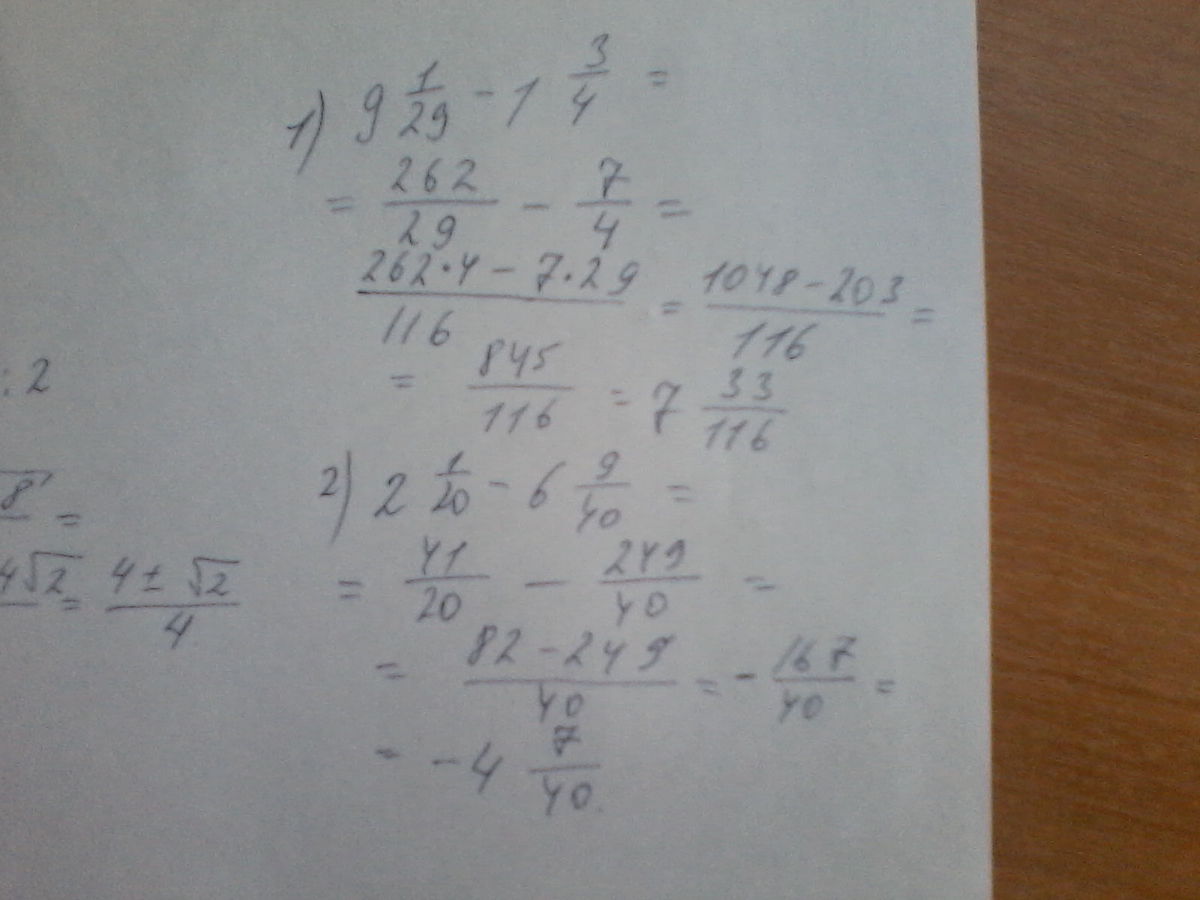 1) 9 1/29 - 1 3/4 =
= 262/29 - 7/4 =
(262·4 - 7·29)/116 = (1048-203)/116 =
= 845/116 = 7 33/116
2) 2 1/20 - 6 9/40 =
= 41/20 - 249/40 =
= (82-249)/40 = - 167/40 =
= -4 7/40
: 2
√8 =
4√2 = (4 ± √2)/4